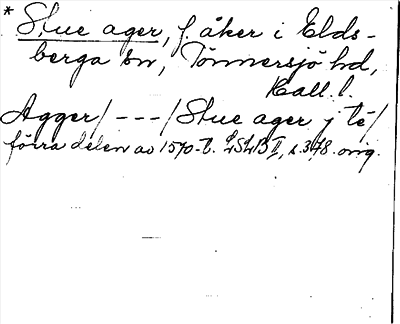 * Stue ager, f. åker i Elds-
berga sn, Tönnersjö hd,
Hall. l.
Agger/---/Stue ager j té/
förra delen av 1570-t. LSLB II, s. 378. orig.